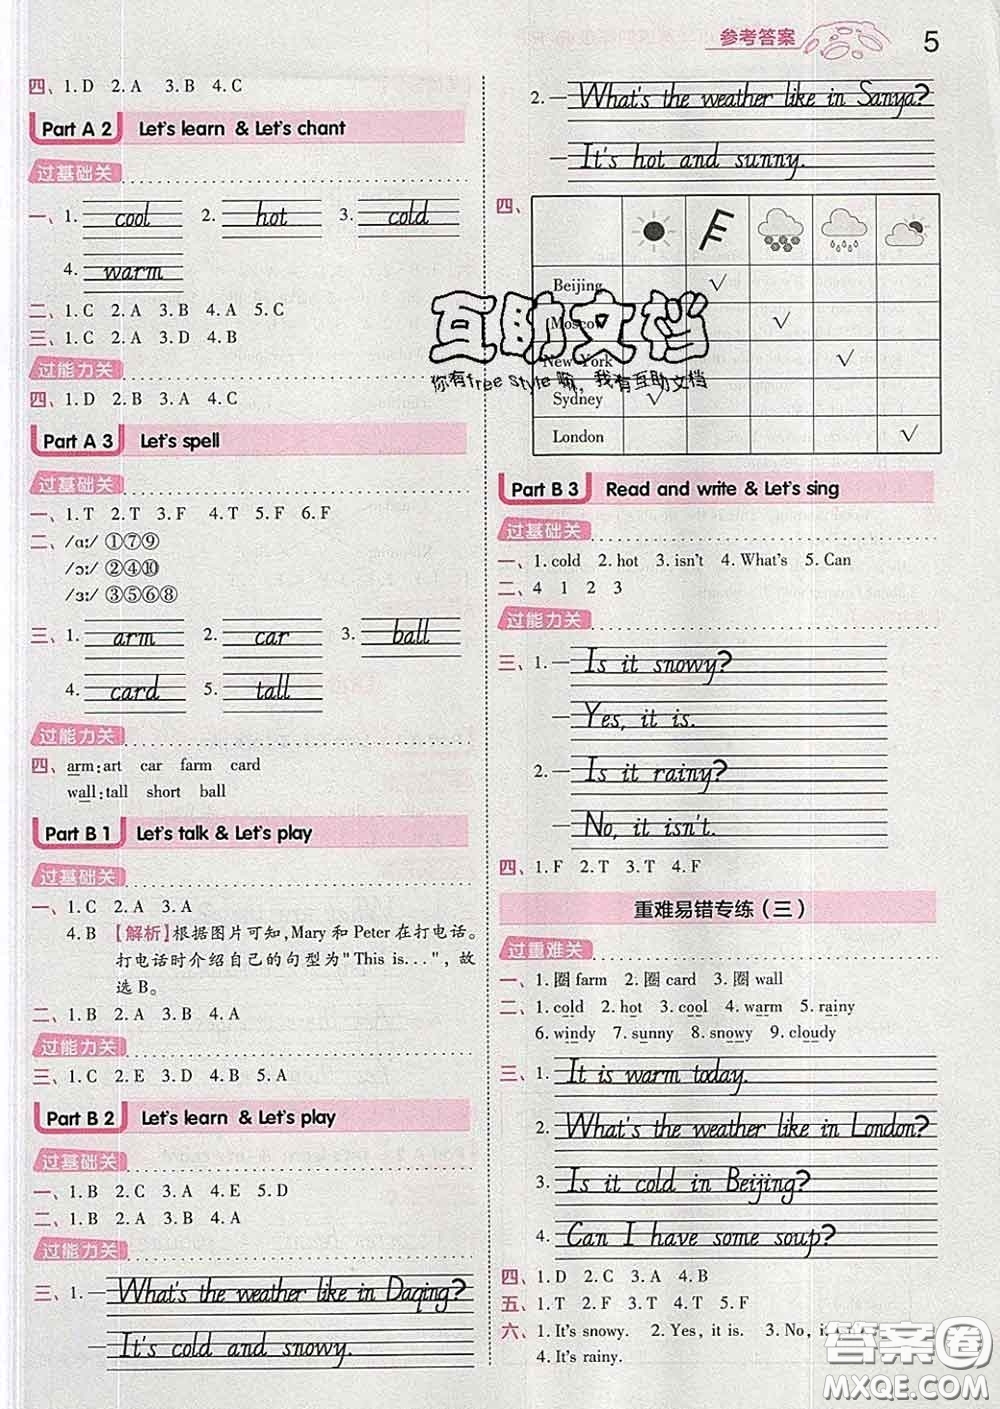 参考答案 5
四、1. D 2. A 3. B 4. C
Part A 2 Let's learn & Let's chant
过基础关
一、1. cool 2. hot 3. cold
4. warm
二、1. C 2. A 3. B 4. A 5. C
三、1. C 2. A 3. D 4. B
过能力关
四、1. D 2. B 3. A 4. C
Part A 3 Let's spell
过基础关
一、1. T 2. T 3. F 4. T 5. F 6. F
二、/ɑː/ ①⑦⑨
/ɔː/ ②④⑩
/ɜː/ ③⑤⑥⑧
三、1. arm 2. car 3. ball
4. card 5. tall
过能力关
四、arm: art car farm card
wall: tall short ball
Part B 1 Let's talk & Let's play
过基础关
一、1. C 2. A 3. A
4. B 【解析】根据图片可知, Mary 和 Peter 在打电话。
打电话时介绍自己的句型为"This is...", 故
选 B。
二、1. B 2. A 3. B 4. A
过能力关
三、1. C 2. E 3. D 4. B 5. A
Part B 2 Let's learn & Let's play
过基础关
一、1. B 2. C 3. A 4. E 5. D
二、1. B 2. A 3. B 4. A
过能力关
三、1. — What's the weather like in Daqing?
— It's cold and snowy.
2. — What's the weather like in Sanya?
— It's hot and sunny.
四、
Beijing √
Moscow √
New York √
Sydney √
London √
互助文档
你有free style 嘛，我有互助文档
Part B 3 Read and write & Let's sing
过基础关
一、1. cold 2. hot 3. isn't 4. What's 5. Can
二、4 1 2 3
过能力关
三、1. — Is it snowy?
— Yes, it is.
2. — Is it rainy?
— No, it isn't.
四、1. F 2. T 3. T 4. F
重难易错专练（三）
过重难关
一、1. 圈 farm 2. 圈 card 3. 圈 wall
二、1. cold 2. hot 3. cool 4. warm 5. rainy
6. windy 7. sunny 8. snowy 9. cloudy
三、1. It is warm today.
2. What's the weather like in London?
3. Is it cold in Beijing?
4. Can I have some soup?
四、1. D 2. C 3. A 4. B
五、1. T 2. F 3. T 4. T 5. F
六、1. It's snowy. 2. Yes, it is. 3. No, i
4. It's rainy.
答案圈
MXQE.COM